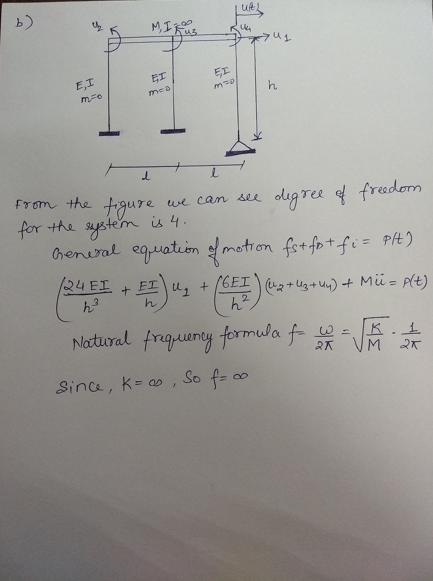 b)
u(t)
u2 M, I=∞ u3 u4 u1
E,I E,I E,I
m=0 m=0 m=0
h
l l
From the figure we can see degree of freedom
for the system is 4.
General equation of motion fs+fD+fi = P(t)
(24EI/h³ + EI/h) u1 + (6EI/h²) (u2+u3+u4) + Mü = P(t)
Natural frequency formula f = ω/2π = √K/M · 1/2π
Since, K=∞, So f=∞